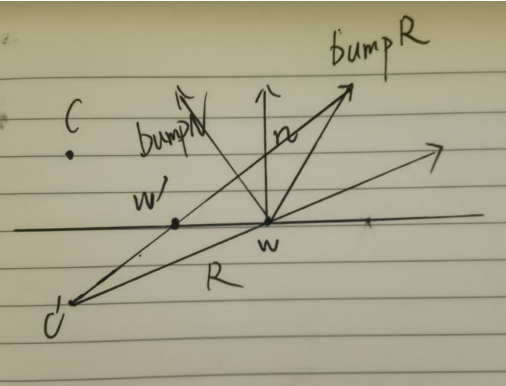 bumpR
C
bumpN
n
w'
w
R
C'